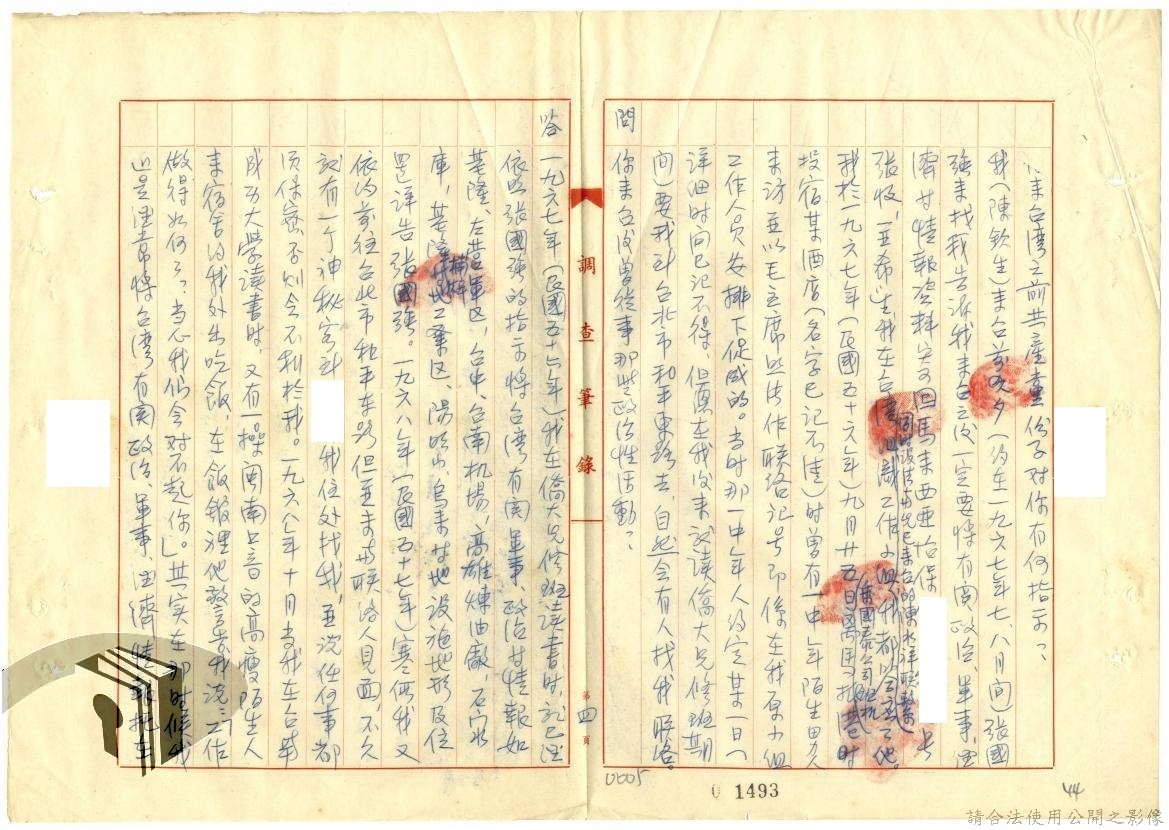 來台灣之前共產黨份子對你有何指示？
我（陳欽生）來台前夕（約在一九六七年七、八月間）張國
強來找我告訴我來台之後一定要將有關政治、軍事、經
濟等情報資料寄回馬來西亞怡保 長
張收，並希
同時設法 已來台的陳水祥聯繫
我於一九六七年（民國五十六年）九月廿五日 時
投宿某酒店（名字已記不清）時曾有一中年陌生男人
來訪並以毛主席 作聯絡記号即係在我原小組
工作人員安排下促成的。当时那一中年人約定某一日（
詳細时间已記不得，但
間）要我到台北市和平東路去，自然会有人找我联络。
問 你來台後曾從事那些政治性活動？
答 一九六七年（民國五十六年）我在僑大先修班读書时，就已經
依照張國強的指示將台湾有関軍事、政治等情報如
基隆、左營軍区，台中、台南机場，高雄煉油廠，石门水
庫，基隆 工業区、陽明山、烏來等地設施地形及位
置詳告張國強。一九六八年（民國五十七年）寒假我又
依約前往台北市和平東路但並未與联絡人見面，不久
就有一个神秘客到 我住处找我，並說任何事都
須保密否則会不利於我。一九六八年十月当我在台南
成功大学读書时，又有一操闽南口音的高瘦陌生人
來宿舍约我外出吃飯，在飯館裡他警告我說「工作
做得如何了？当心我们会对不起你」。其实在那时候我
也是經常將台湾有関政治、軍事、經濟情報
調查筆錄
第四頁
0005
1493
44
請合法使用公開之影像